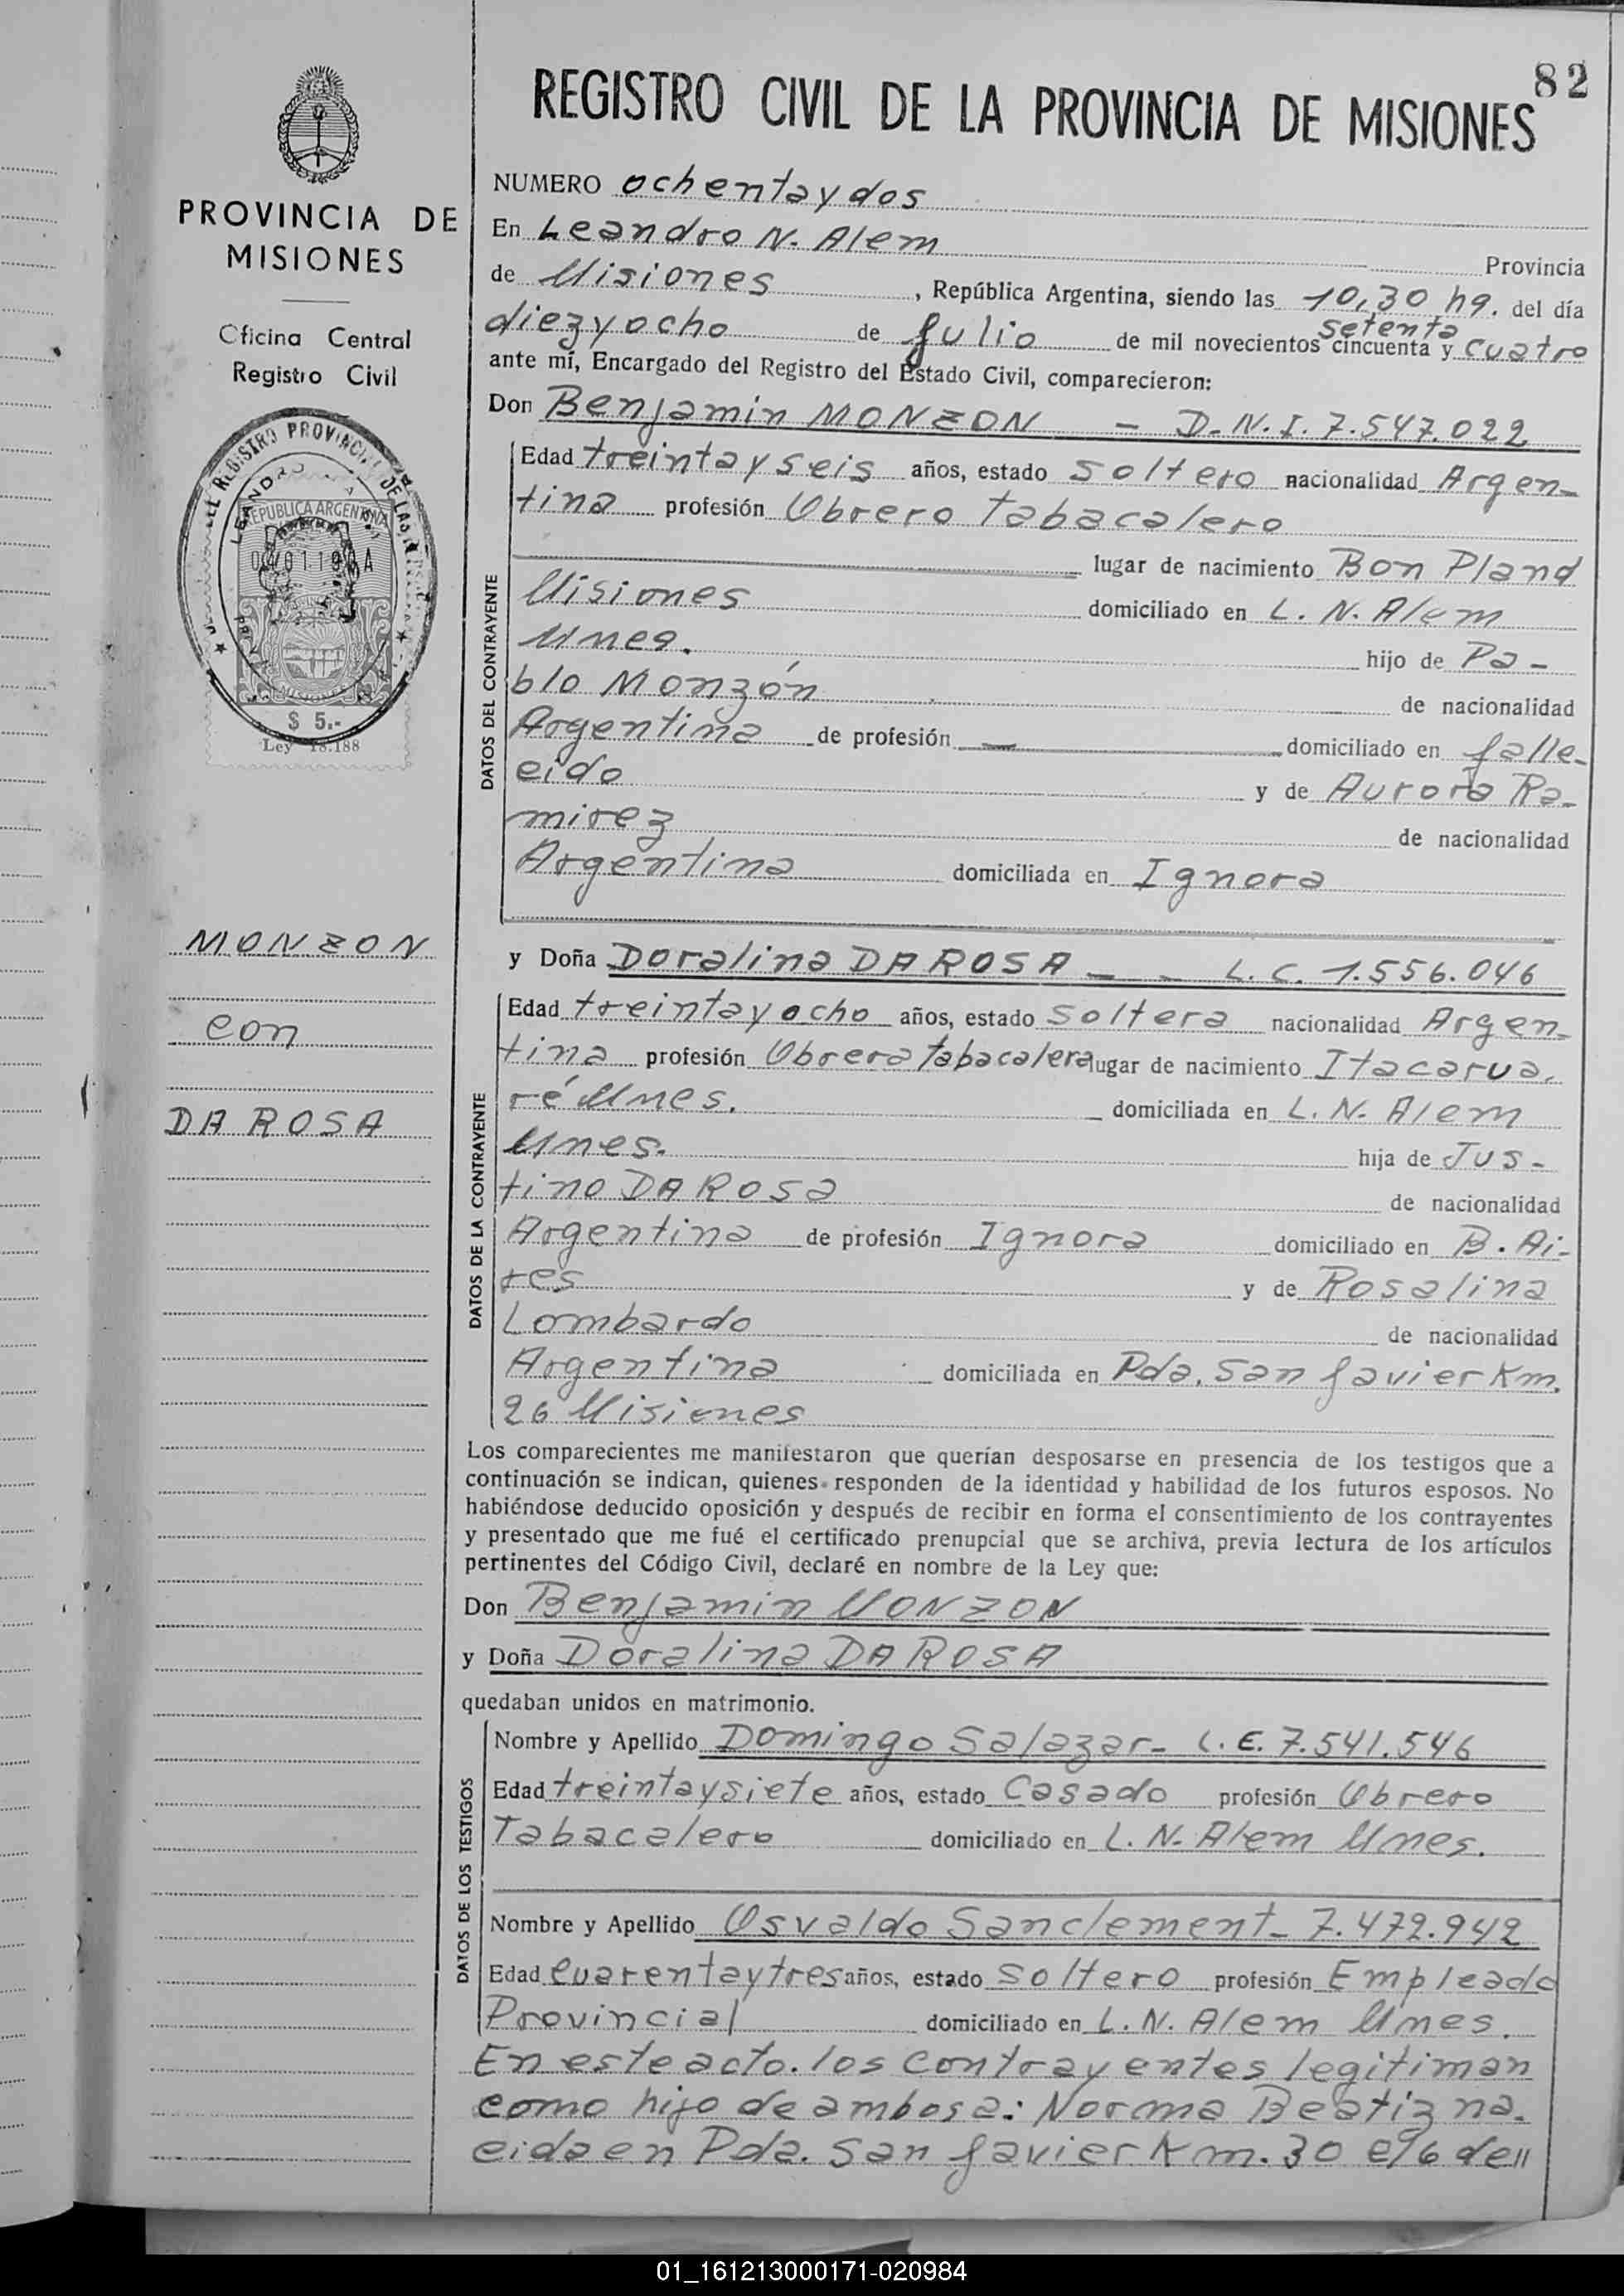 82
REGISTRO CIVIL DE LA PROVINCIA DE MISIONES
PROVINCIA DE
MISIONES
Oficina Central
Registro Civil
REPUBLICA ARGENTINA
MISIONES
$ 5.-
Ley 18.188
MONZON
con
DA ROSA
NUMERO ochenta y dos
En Leandro N. Alem Provincia
de Misiones, República Argentina, siendo las 10,30 hs. del día
setenta
diez y ocho de Julio de mil novecientos cincuenta y cuatro
ante mí, Encargado del Registro del Estado Civil, comparecieron:
Don Benjamin MONZON - D.N.I. 7.547.022
DATOS DEL CONTRAYENTE
Edad treinta y seis años, estado soltero nacionalidad Argen-
tina profesión Obrero Tabacalero
lugar de nacimiento Bon Pland
Misiones domiciliado en L. N. Alem
Mnes. hijo de Pa-
blo Monzón de nacionalidad
Argentina de profesión — domiciliado en falle-
cido y de Aurora Ra-
mirez de nacionalidad
Argentina domiciliada en Ignora
y Doña Doralina DA ROSA - - L.C. 1.556.046
DATOS DE LA CONTRAYENTE
Edad treinta y ocho años, estado soltera nacionalidad Argen-
tina profesión Obrera tabacalera lugar de nacimiento Itacarua-
ré Mnes. domiciliada en L. N. Alem
Mnes. hija de Jus-
tino DA ROSA de nacionalidad
Argentina de profesión Ignora domiciliado en B. Ai-
res y de Rosalina
Lombardo de nacionalidad
Argentina domiciliada en Pda. San Javier Km.
26 Misiones
Los comparecientes me manifestaron que querían desposarse en presencia de los testigos que a
continuación se indican, quienes responden de la identidad y habilidad de los futuros esposos. No
habiéndose deducido oposición y después de recibir en forma el consentimiento de los contrayentes
y presentado que me fué el certificado prenupcial que se archiva, previa lectura de los artículos
pertinentes del Código Civil, declaré en nombre de la Ley que:
Don Benjamin MONZON
y Doña Doralina DA ROSA
quedaban unidos en matrimonio.
DATOS DE LOS TESTIGOS
Nombre y Apellido Domingo Salazar- L.E. 7.541.546
Edad treinta y siete años, estado Casado profesión Obrero
Tabacalero domiciliado en L. N. Alem Mnes.
Nombre y Apellido Osvaldo Sanclement- 7.472.942
Edad cuarenta y tres años, estado soltero profesión Empleado
Provincial domiciliado en L. N. Alem Mnes.
En este acto. los contrayentes legitiman
como hijo de ambos a: Norma Beatiz na-
cida en Pda. San Javier Km. 30 el 6 de
01_161213000171-020984